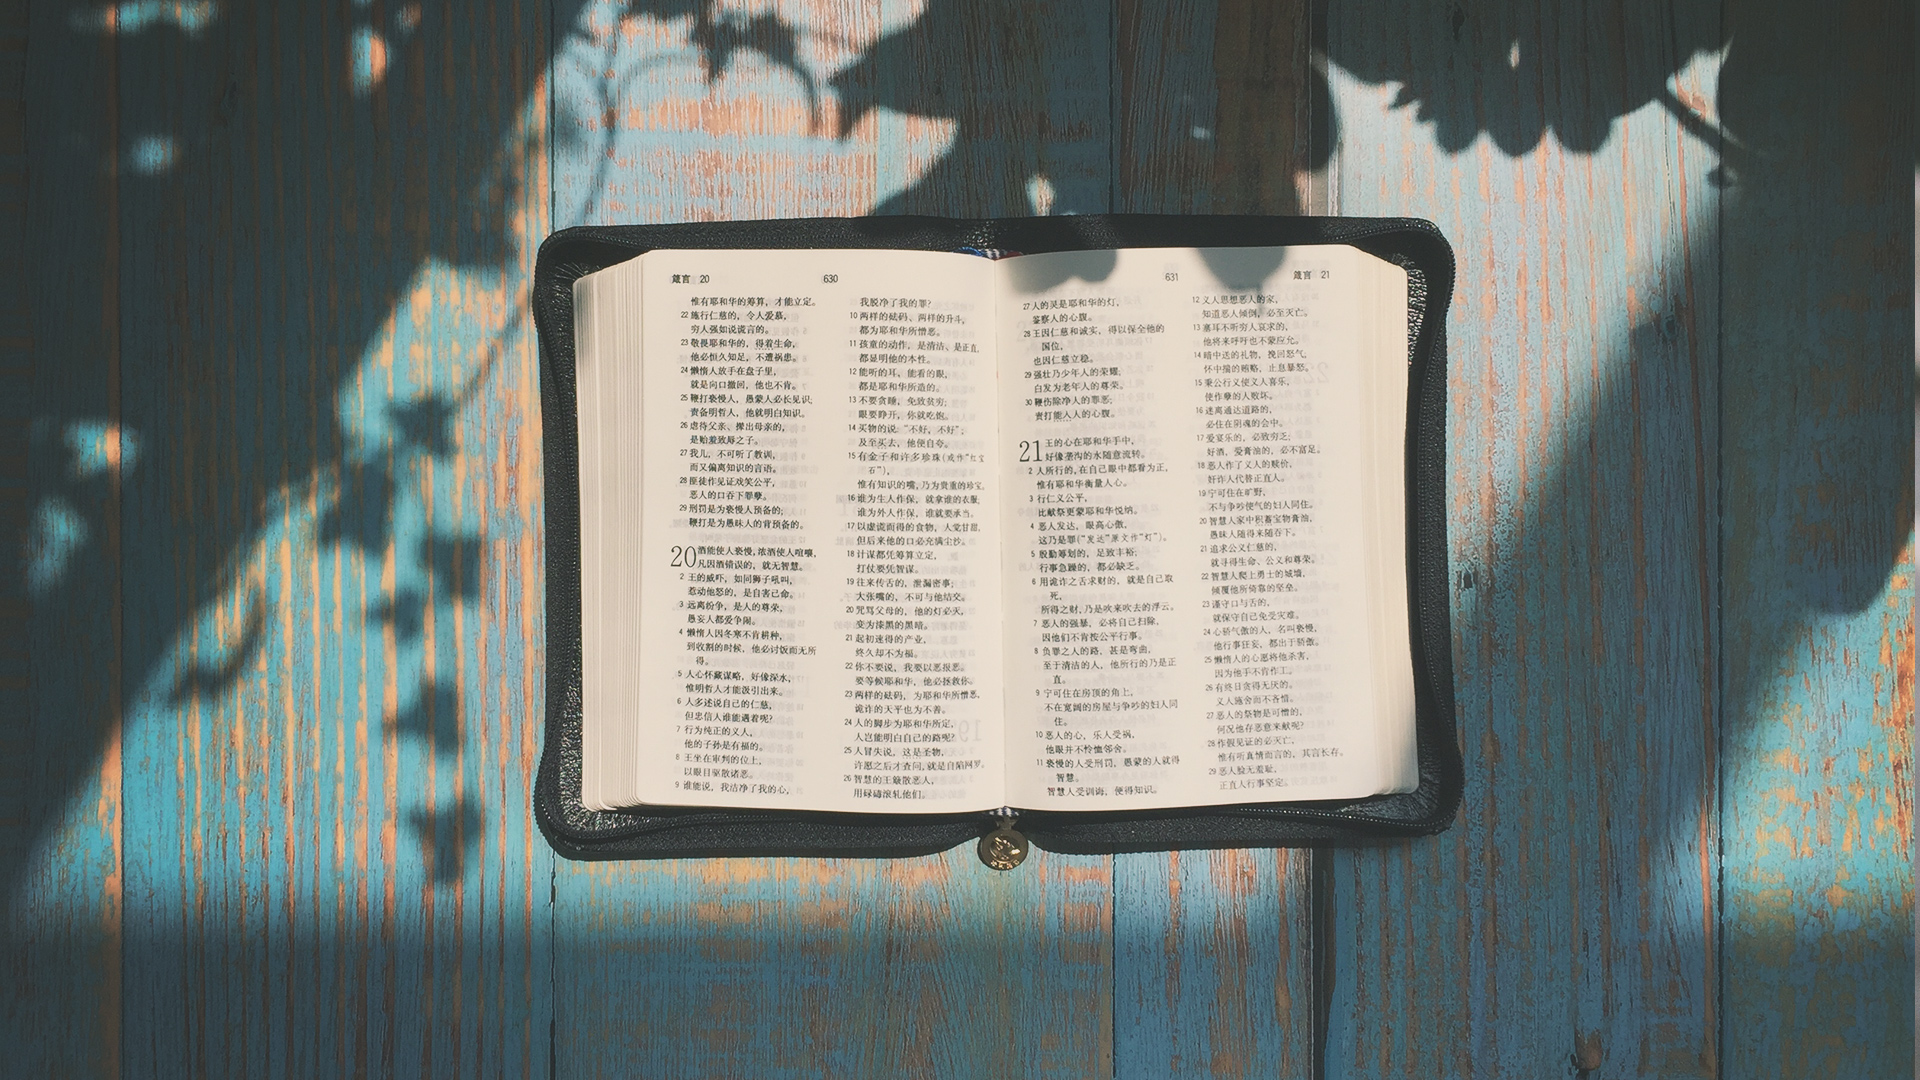 箴言 20
630
惟有耶和华的筹算，才能立定。
22 施行仁慈的，令人爱慕，
穷人强如说谎言的。
23 敬畏耶和华的，得着生命，
他必恒久知足，不遭祸患。
24 懒惰人放手在盘子里，
就是向口撤回，他也不肯。
25 鞭打亵慢人，愚蒙人必长见识；
责备明哲人，他就明白知识。
26 虐待父亲、撵出母亲的，
是贻羞致辱之子。
27 我儿，不可听了教训，
而又偏离知识的言语。
28 匪徒作见证戏笑公平，
恶人的口吞下罪孽。
29 刑罚是为亵慢人预备的；
鞭打是为愚昧人的背预备的。
20 酒能使人亵慢，浓酒使人喧嚷，
凡因酒错误的，就无智慧。
2 王的威吓，如同狮子吼叫，
惹动他怒的，是自害己命。
3 远离纷争，是人的尊荣，
愚妄人都爱争闹。
4 懒惰人因冬寒不肯耕种，
到收割的时候，他必讨饭而无所
得。
5 人心怀藏谋略，好像深水，
惟明哲人才能汲引出来。
6 人多述说自己的仁慈，
但忠信人谁能遇着呢？
7 行为纯正的义人，
他的子孙是有福的。
8 王坐在审判的位上，
以眼目驱散诸恶。
9 谁能说，我洁净了我的心，
我脱净了我的罪？
10 两样的砝码、两样的升斗，
都为耶和华所憎恶。
11 孩童的动作，是清洁、是正直，
都显明他的本性。
12 能听的耳、能看的眼，
都是耶和华所造的。
13 不要贪睡，免致贫穷；
眼要睁开，你就吃饱。
14 买物的说：“不好，不好”；
及至买去，他便自夸。
15 有金子和许多珍珠（或作“红宝
石”），
惟有知识的嘴，乃为贵重的珍宝。
16 谁为生人作保，就拿谁的衣服，
谁为外人作保，谁就要承当。
17 以虚谎而得的食物，人觉甘甜，
但后来他的口必充满尘沙。
18 计谋都凭筹算立定，
打仗要凭智谋。
19 往来传舌的，泄漏密事；
大张嘴的，不可与他结交。
20 咒骂父母的，他的灯必灭，
变为漆黑的黑暗。
21 起初速得的产业，
终久却不为福。
22 你不要说，我要以恶报恶，
要等候耶和华，他必拯救你。
23 两样的砝码，为耶和华所憎恶，
诡诈的天平也为不善。
24 人的脚步为耶和华所定，
人岂能明白自己的路呢？
25 人冒失说，这是圣物，
许愿之后才查问，就是自陷网罗。
26 智慧的王簸散恶人，
用碌碡滚轧他们。
631
箴言 21
27 人的灵是耶和华的灯，
鉴察人的心腹。
28 王因仁慈和诚实，得以保全他的
国位，
也因仁慈立稳。
29 强壮乃少年人的荣耀；
白发为老年人的尊荣。
30 鞭伤除净人的罪恶；
责打能入人的心腹。
21 王的心在耶和华手中，
好像垄沟的水随意流转。
2 人所行的，在自己眼中都看为正，
惟有耶和华衡量人心。
3 行仁义公平，
比献祭更蒙耶和华悦纳。
4 恶人发达，眼高心傲，
这乃是罪（“发达”原文作“灯”）。
5 殷勤筹划的，足致丰裕；
行事急躁的，都必缺乏。
6 用诡诈之舌求财的，就是自己取
死，
所得之财，乃是吹来吹去的浮云。
7 恶人的强暴，必将自己扫除，
因他们不肯按公平行事。
8 负罪之人的路，甚是弯曲，
至于清洁的人，他所行的乃是正
直。
9 宁可住在房顶的角上，
不在宽阔的房屋与争吵的妇人同
住。
10 恶人的心，乐人受祸，
他眼并不怜恤邻舍。
11 亵慢的人受刑罚，愚蒙的人就得
智慧。
智慧人受训诲，便得知识。
12 义人思想恶人的家，
知道恶人倾倒，必至灭亡。
13 塞耳不听穷人哀求的，
他将来呼吁也不蒙应允。
14 暗中送的礼物，挽回怒气，
怀中搋的贿赂，止息暴怒。
15 秉公行义使义人喜乐，
使作孽的人败坏。
16 迷离通达道路的，
必住在阴魂的会中。
17 爱宴乐的，必致穷乏；
好酒，爱膏油的，必不富足。
18 恶人作了义人的赎价，
奸诈人代替正直人。
19 宁可住在旷野，
不与争吵使气的妇人同住。
20 智慧人家中积蓄宝物膏油，
愚昧人随得来随吞下。
21 追求公义仁慈的，
就寻得生命、公义和尊荣。
22 智慧人爬上勇士的城墙，
倾覆他所倚靠的坚垒。
23 谨守口与舌的，
就保守自己免受灾难。
24 心骄气傲的人，名叫亵慢，
他行事狂妄，都出于骄傲。
25 懒惰人的心愿将他杀害，
因为他手不肯作工。
26 有终日贪得无厌的，
义人施舍而不吝惜。
27 恶人的祭物是可憎的，
何况他存恶意来献呢？
28 作假见证的必灭亡，
惟有听真情而言的，其言长存。
29 恶人脸无羞耻，
正直人行事坚定。